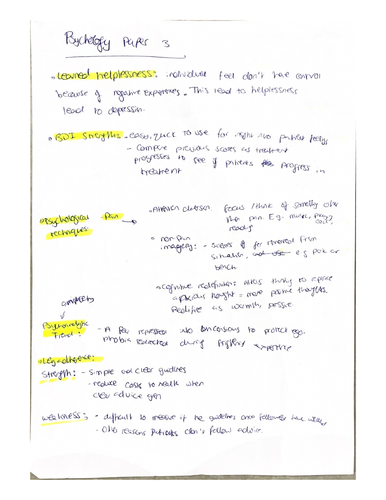 Psychology Paper 3
• Learned helplessness: individual feel don't have control
because of negative experiences. This lead to helplessness
lead to depression.
• BDI Strengths: easy, quick to use for insight into patient feelings
- Compare previous scores as treatment
progresses to see if patients progress in
treatment
• Psychological Pain
techniques
• Attention diversion focus / think of something other
than pain. E.g. music,
reading
• non pain
imagery: - scenes of far removed from
situation, e.g. park or
beach
• Cognitive redefinition: alters thinking to replace
thoughts - more positive thoughts.
Redefine as warmth, pressure
Psychoanalytic
Freud:
- A fear repressed into unconscious to protect ego.
phobia
• Leg
Strength: - simple and clear guidelines
- reduce costs to health when
clear advice given
weakness: - difficult to measure if the guidelines once followed have
- other reasons patients don't follow advice.